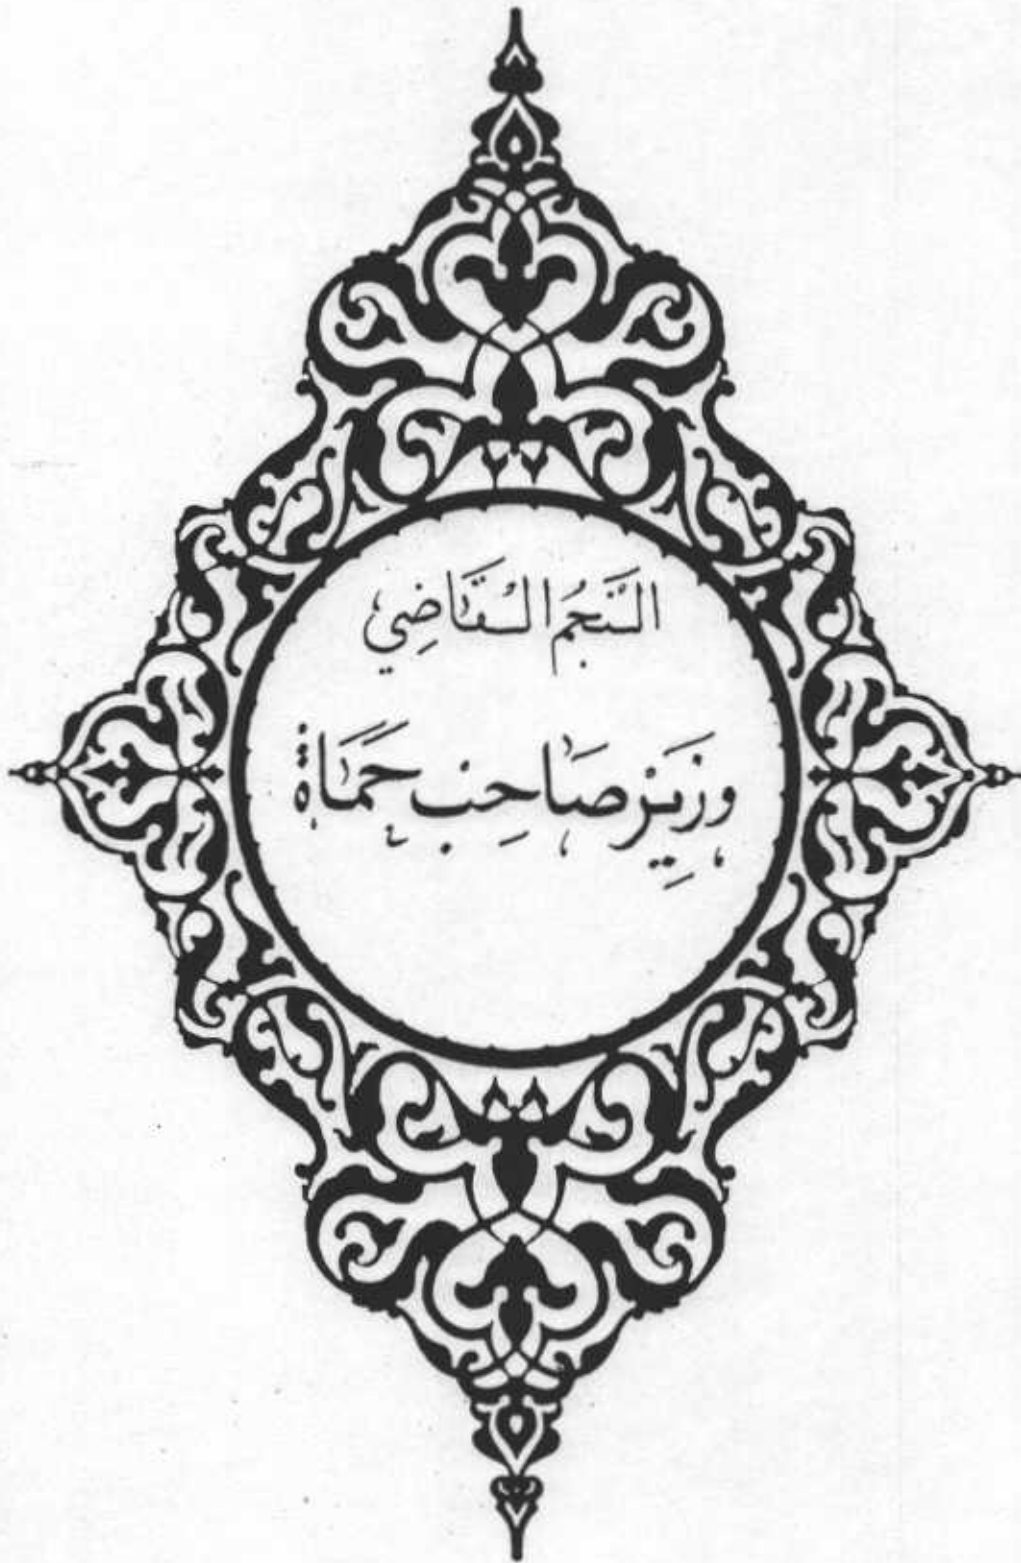 النَّجمُ القَاضِي
وَزيَرْ صَاحِب حَمَاة